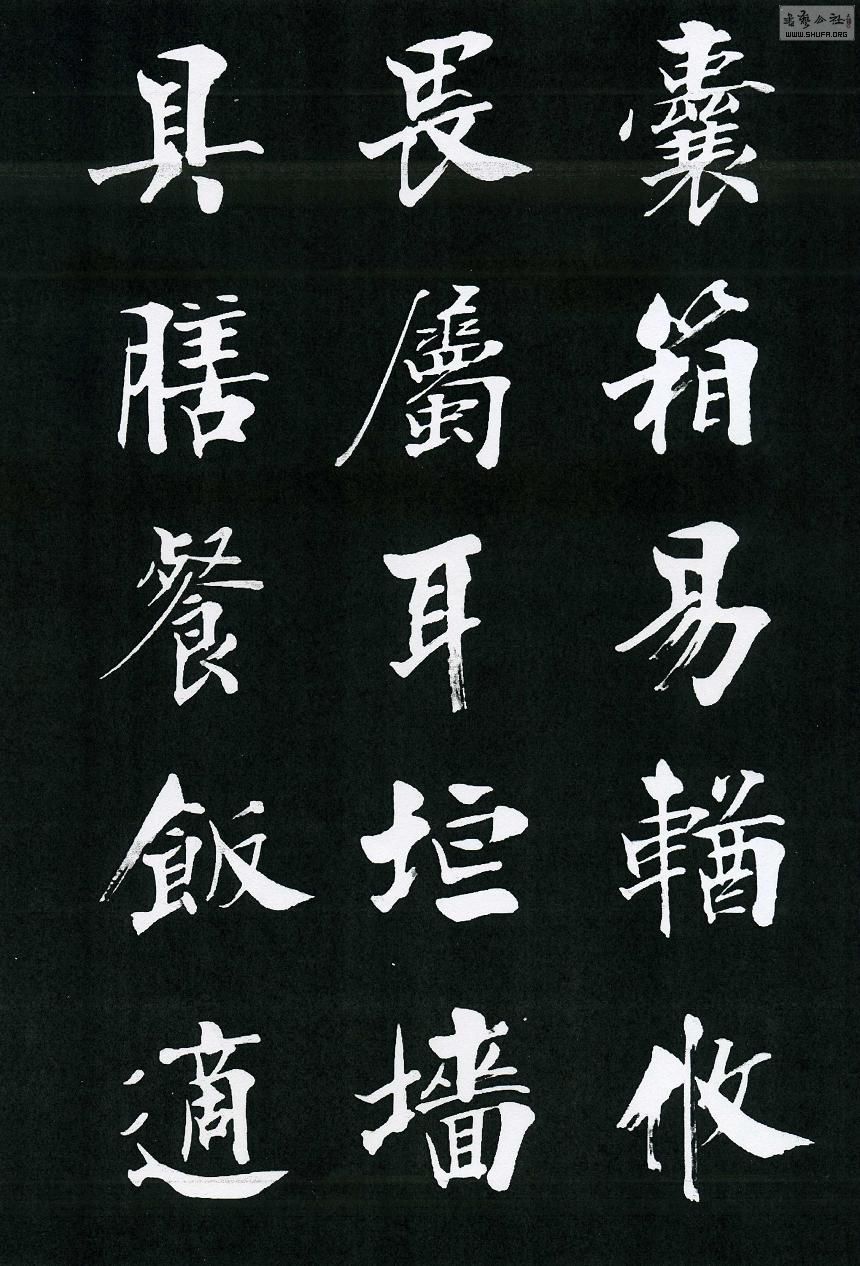 囊箱易輶攸
畏屬耳垣墻
具膳餐飯適
WWW.SHUFA.ORG